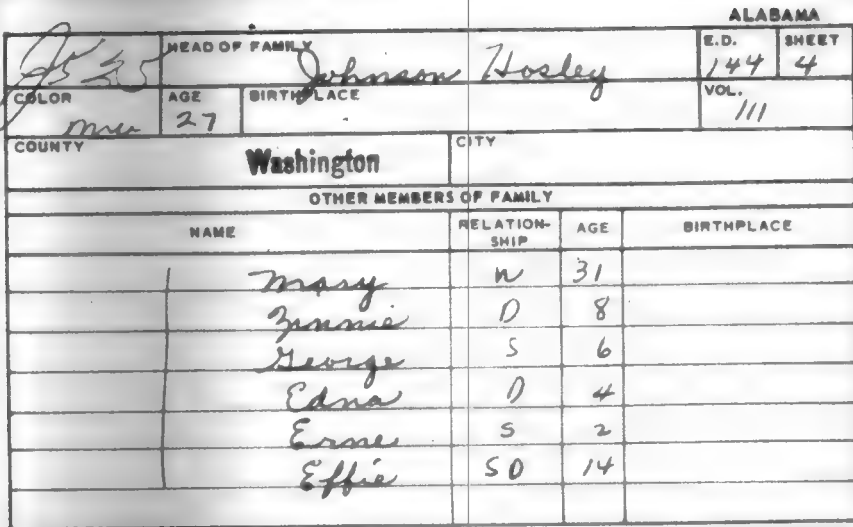 ALABAMA
J525 HEAD OF FAMILY Johnson Hosley E.D. 144 SHEET 4
COLOR mu AGE 27 BIRTHPLACE VOL. 111
COUNTY Washington CITY
OTHER MEMBERS OF FAMILY
NAME RELATION-SHIP AGE BIRTHPLACE
Mary W 31
Zinnie D 8
George S 6
Edna D 4
Erne S 2
Effie SD 14